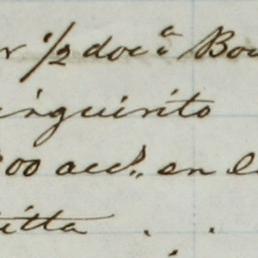 r 1/2 doc.ª Bo
inguirito
00 acc.s en l
itta . .